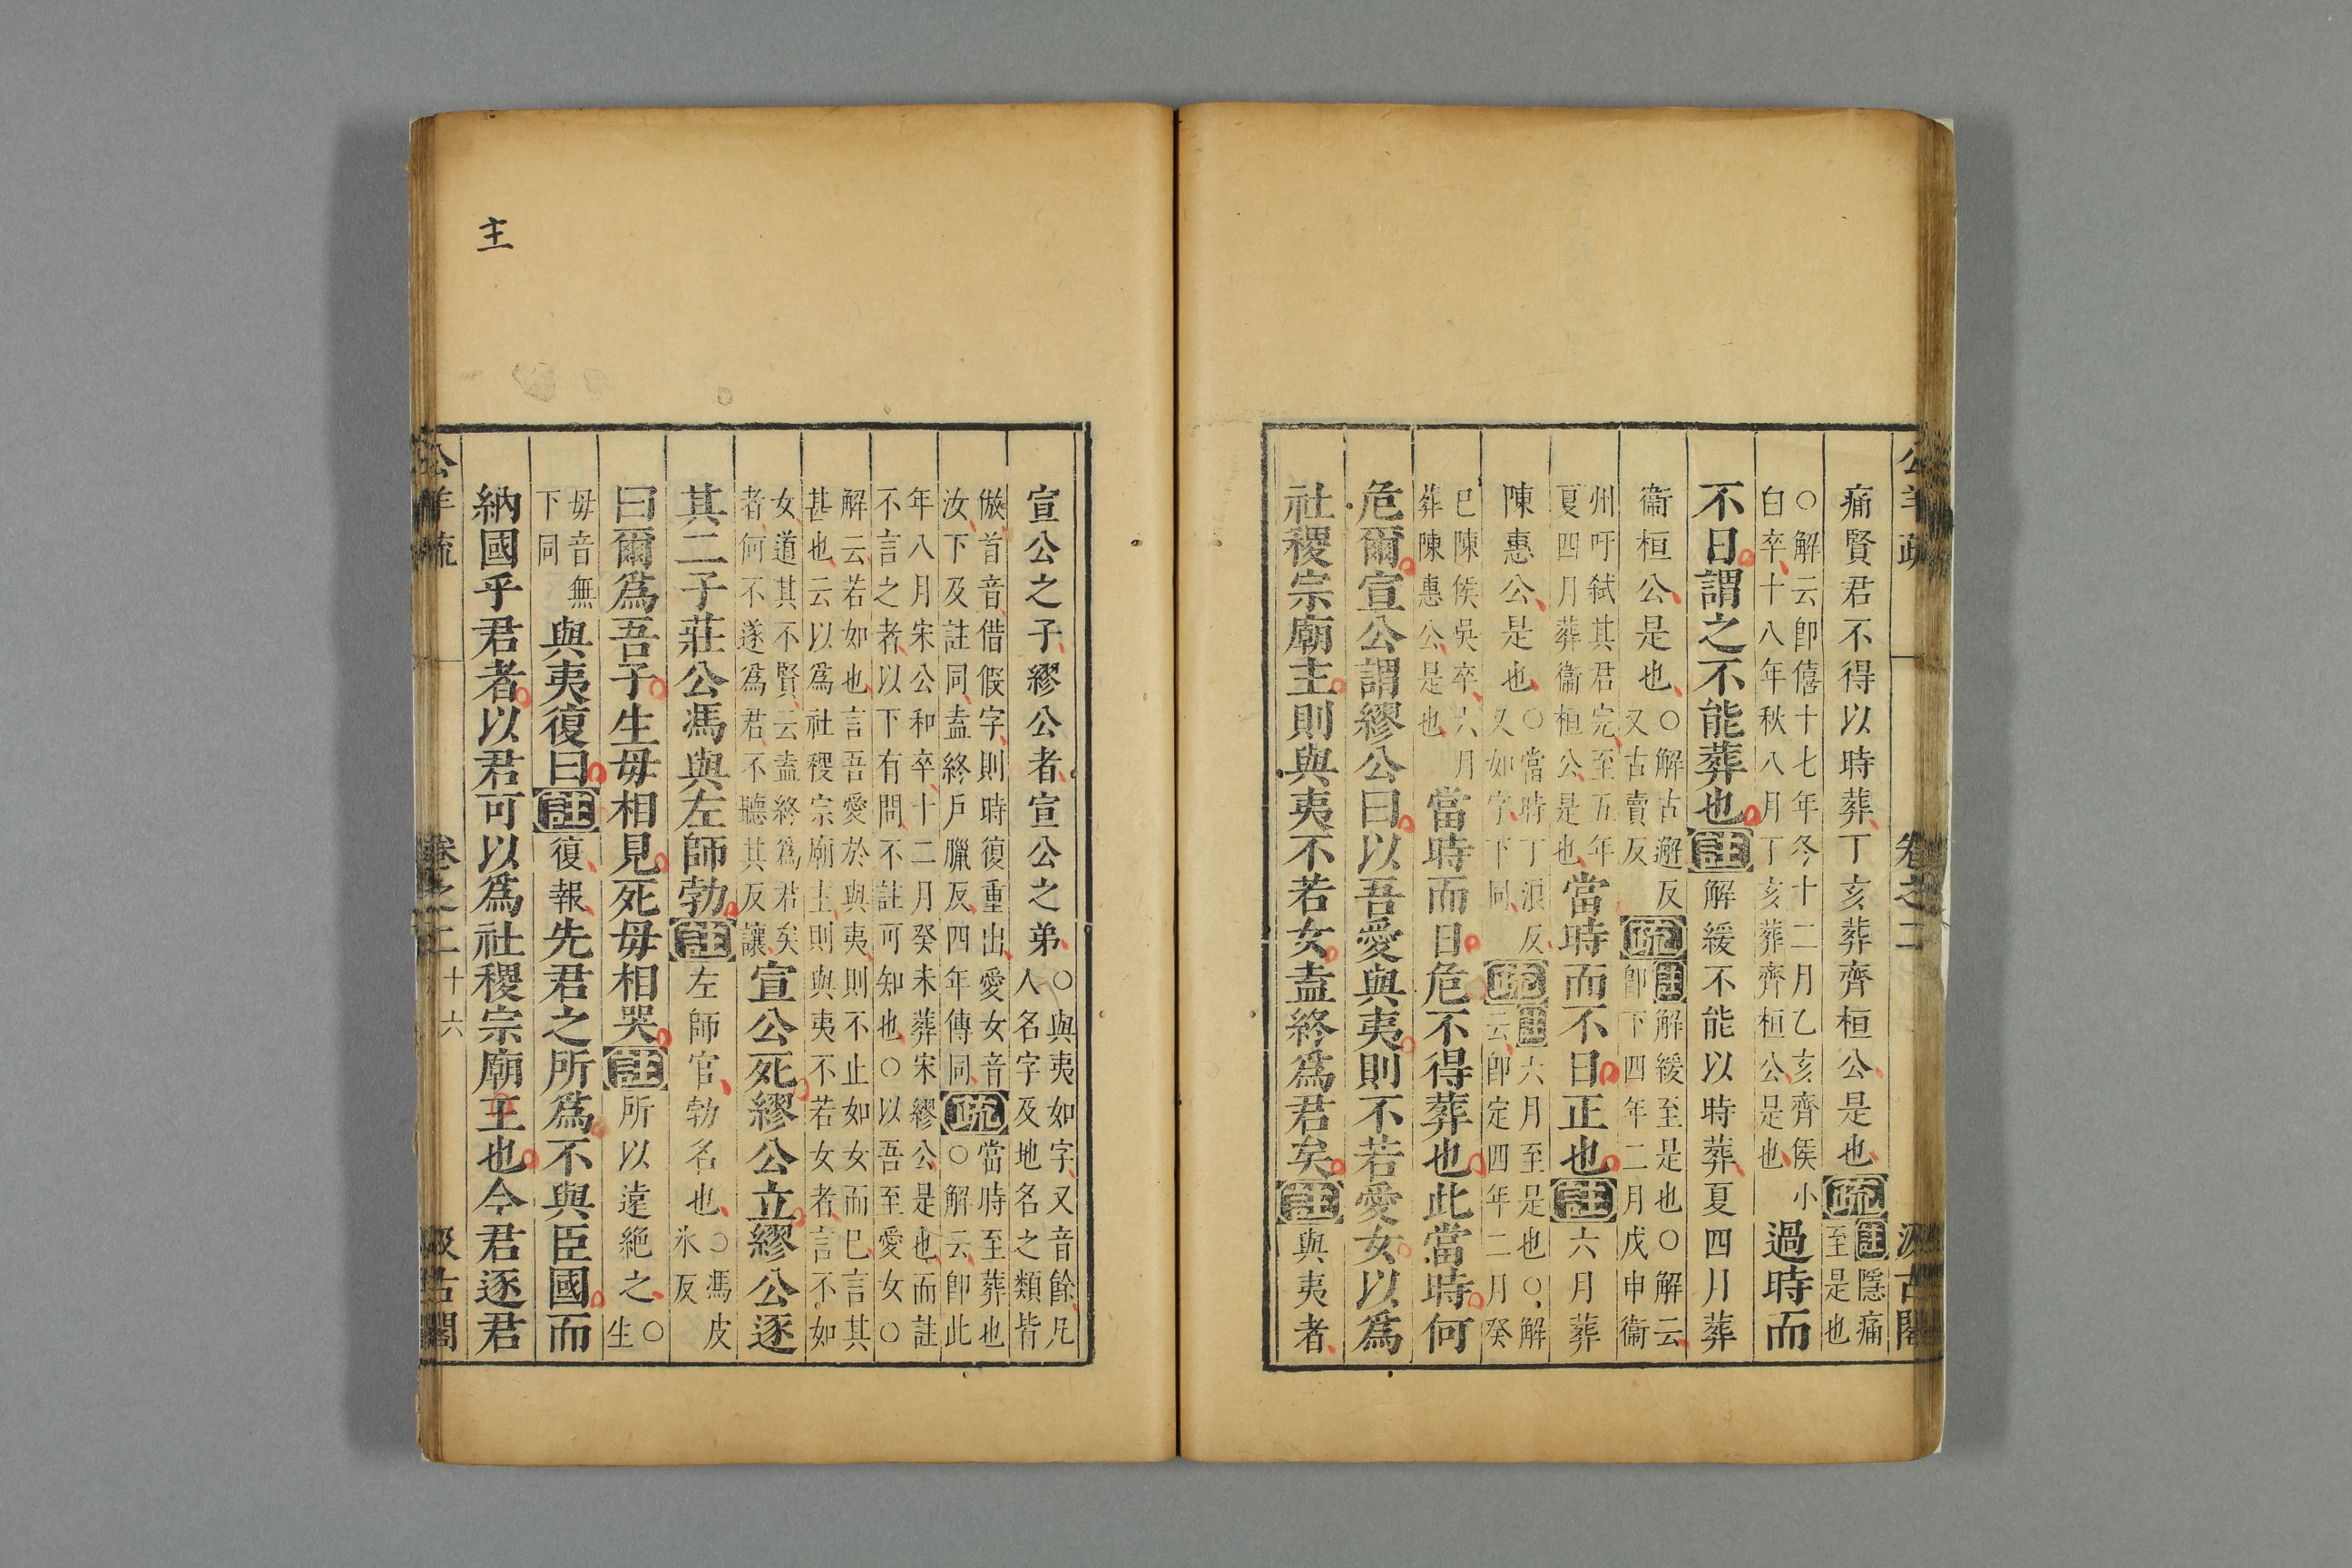 公羊疏 卷之二 汲古閣
痛賢君不得以時葬丁亥葬齊桓公是也疏註隱痛
至是也
○解云卽僖十七年冬十二月乙亥齊侯小
白卒十八年秋八月丁亥葬齊桓公是也
過時而
不日謂之不能葬也註解緩不能以時葬夏四月葬
衞桓公是也
○解古邂反
又古賣反
疏註解緩至是也○解云
卽下四年二月戊申衞
州吁弒其君完至五年
夏四月葬衞桓公是也
當時而不日正也註六月葬
陳惠公是也
○當時丁浪反
又如字下同
疏註六月至是也○解
云卽定四年二月癸
巳陳侯吳卒六月
葬陳惠公是也
當時而日危不得葬也此當時何
危爾宣公謂繆公曰以吾愛與夷則不若愛女以爲
社稷宗廟主則與夷不若女盍終爲君矣註與夷者
主
宣公之子繆公者宣公之弟
○與夷如字又音餘凡
人名字及地名之類皆
倣首音借假字則時復重出愛女音
汝下及註同盍終戶臘反四年傳同
疏當時至葬也
○解云卽此
年八月宋公和卒十二月癸未葬宋繆公是也而註
不言之者以下有問不註可知也○以吾至愛女○
解云若如也言吾愛於與夷則不止如女而已言其
甚也云以爲社稷宗廟主則與夷不若女者言不如
女道其不賢云盍終爲君矣
者何不遂爲君不聽其反讓
宣公死繆公立繆公逐
其二子莊公馮與左師勃註左師官勃名也
○馮皮
氷反
曰爾爲吾子生毋相見死毋相哭註所以遠絶之
○
生
毋音無
下同
與夷復曰註復報先君之所爲不與臣國而
納國乎君者以君可以爲社稷宗廟主也今君逐君
公羊疏 卷之二 十六 汲古閣